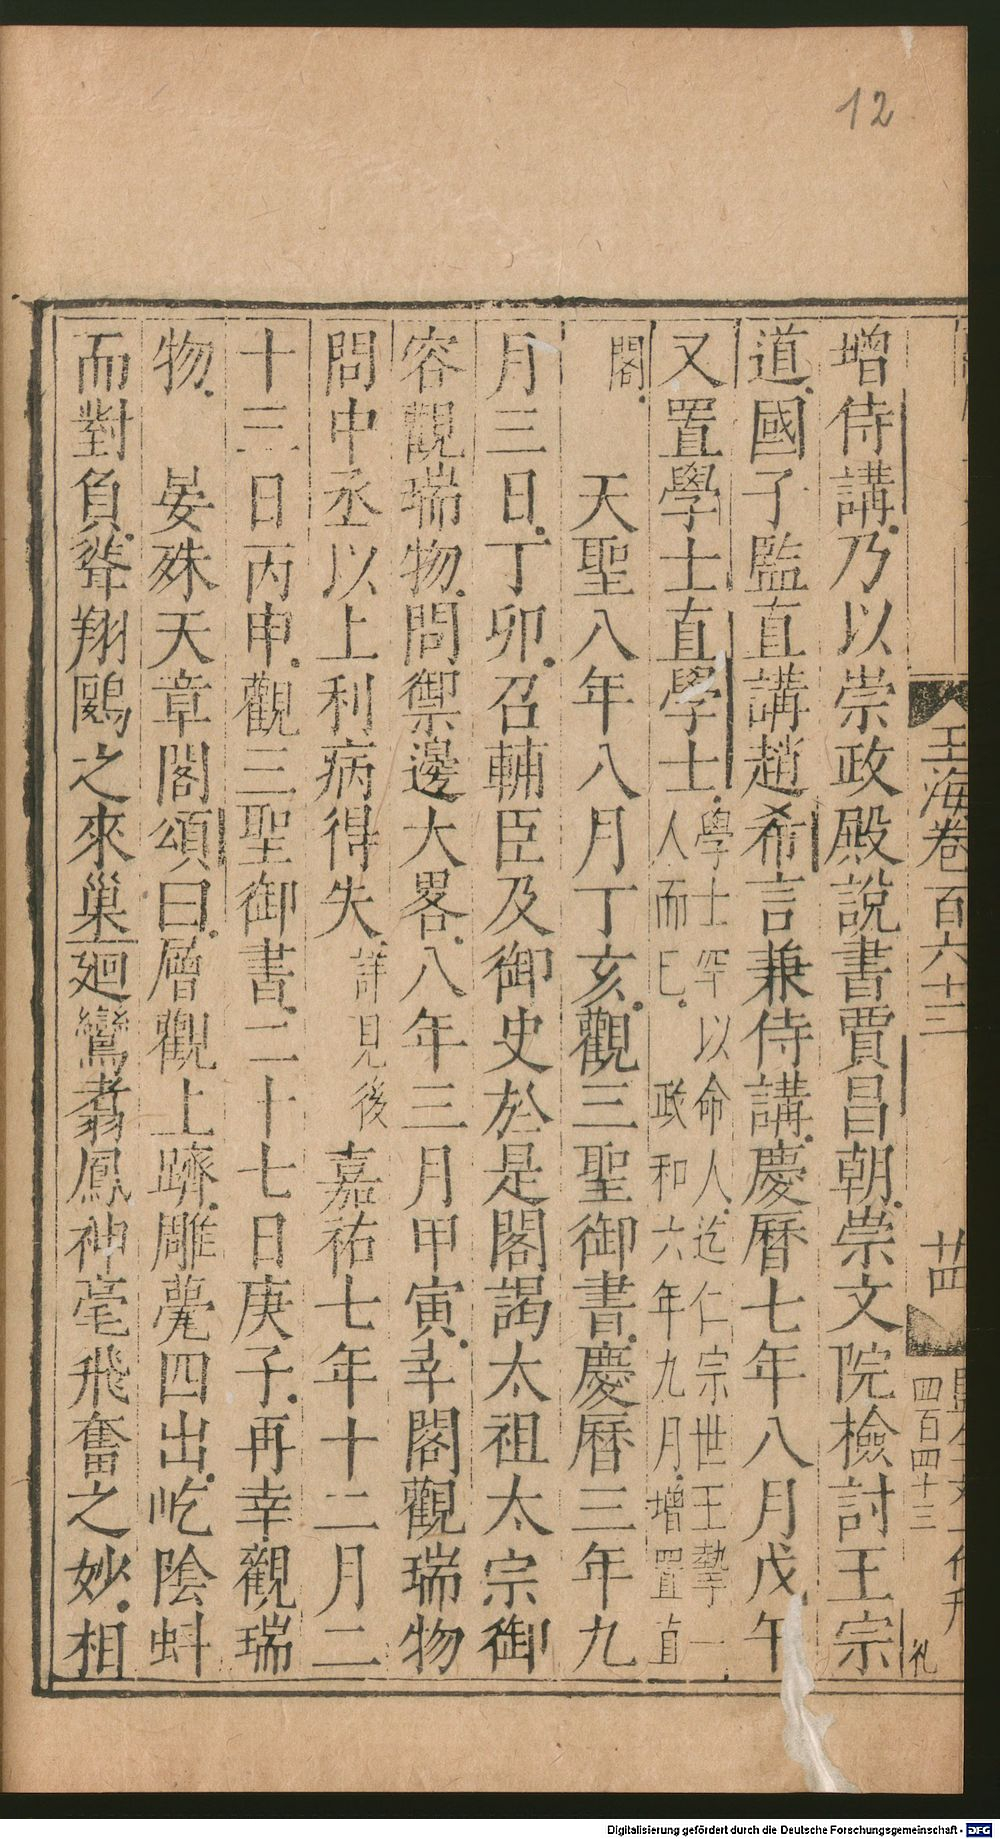 12
玉海卷百六十三
廿四
四百四十三
礼
增侍講乃以崇政殿說書賈昌朝崇文院檢討王宗
道國子監直講趙希言兼侍講慶曆七年八月戊午
又置學士直學士學士罕以命人迄仁宗世王摯一人而已政和六年九月增置直
閣
天聖八年八月丁亥觀三聖御書慶曆三年九
月三日丁卯召輔臣及御史於是閣謁太祖太宗御
容觀瑞物問禦邊大畧八年三月甲寅幸閣觀瑞物
問中丞以上利病得失詳見後嘉祐七年十二月二
十三日丙申觀三聖御書二十七日庚子再幸觀瑞
物晏殊天章閣頌曰層觀上躋雕甍四出屹陰蚪
而對負聳翔鷗之來巢廻鸞翥鳳神毫飛奮之妙相
Digitalisierung gefördert durch die Deutsche Forschungsgemeinschaft - DFG